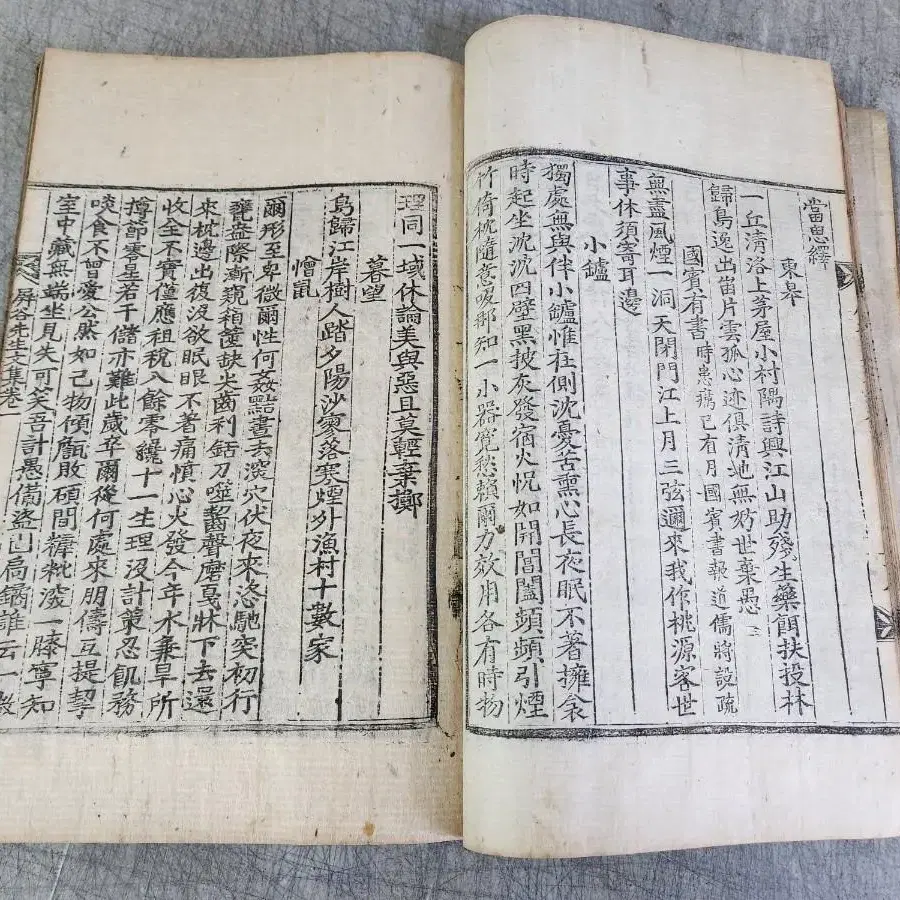 當思繹
東皋
一丘淸洛上茅屋小村隅詩興江山助殘生藥餌扶投林
歸鳥逸出岫片雲孤心迹俱淸地無妨世棄愚
國賓有書 時患癘已有月國賓書報道儒將設疏
無盡風煙一洞天閉門江上月三弦邇來我作桃源客世
事休須寄耳邊
小鑪
獨處無與伴小鑪惟在側沈憂苦熏心長夜眠不著擁衾
時起坐沈沈四壁黑披灰發宿火怳如開閶闔頻頻引煙
竹倚枕隨意吸鄙知一小器寬愁賴爾力效用各有時物
理同一域休論美與惡且莫輕棄擲
暮望
鳥歸江岸樹人踏夕陽沙寥落寒煙外漁村十數家
憎鼠
爾形至卑微爾性何姦黠晝去深穴伏夜來恣馳突初行
甕盎際漸窺箱篋缺尖齒利銛刀噬齧聲磨戛牀下去還
來枕邊出復沒欲眠眼不著痛憤心火發今年水兼旱所
收全不實僅應租稅入餘零纔十一生理沒計策忍飢務
撙節零星若干儲亦難此歲卒爾後何處來朋儔互提挈
啖食不曾愛公然如己物傾甔敗碩間糠粃潑一膝寧知
室中藏無端坐見失可笑吾計愚備盜已扃鐍誰云一微
屛谷先生文集卷一